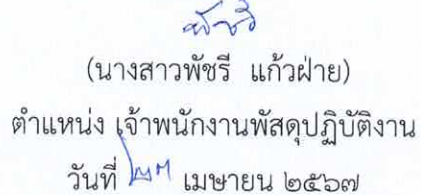 (นางสาวพัชรี แก้วฝ่าย)
ตำแหน่ง เจ้าพนักงานพัสดุปฏิบัติงาน
วันที่ เมษายน ๒๕๖๗